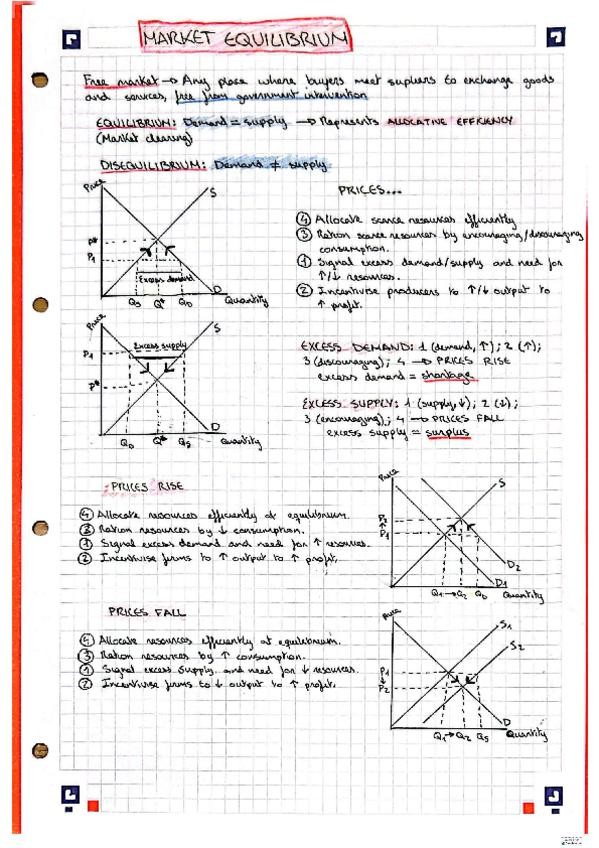 MARKET EQUILIBRIUM
Free market → Any place where buyers meet supliers to exchange goods
and services, free from government intervention
EQUILIBRIUM: Demand = supply → Represents ALLOCATIVE EFFICIENCY
(Market clearing)
DISEQUILIBRIUM: Demand ≠ supply
Price
S
P*
P1
Excess demand
D
Qs Q* QD Quantity
PRICES...
④ Allocate scarce resources efficiently
③ Ration scarce resources by encouraging/discouraging
consumption.
① Signal excess demand/supply and need for
↑/↓ resources.
② Incentivise producers to ↑/↓ output to
↑ profit.
Price
S
Excess supply
P1
P*
D
QD Q* Qs Quantity
EXCESS DEMAND: 1 (demand, ↑); 2 (↑);
3 (discouraging); 4 → PRICES RISE
excess demand = shortage
EXCESS SUPPLY: 1 (supply, ↓); 2 (↓);
3 (encouraging); 4 → PRICES FALL
excess supply = surplus
PRICES RISE
④ Allocate resources efficiently at equilibrium.
③ Ration resources by ↓ consumption.
① Signal excess demand and need for ↑ resources.
② Incentivise firms to ↑ output to ↑ profit.
Price
S
P2
↑
P1
D2
D1
Q1→Q2 QD Quantity
PRICES FALL
④ Allocate resources efficiently at equilibrium.
③ Ration resources by ↑ consumption.
① Signal excess supply and need for ↓ resources.
② Incentivise firms to ↓ output to ↑ profit.
Price
S1
S2
P1
↓
P2
D
Q1→Q2 Qs Quantity